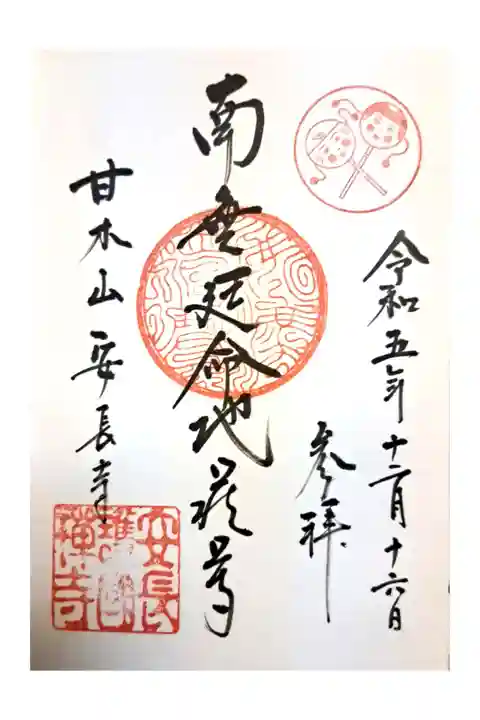 令和五年十二月十六日
参拝
南無延命地蔵尊
甘木山安長寺
安長
護國
禅寺